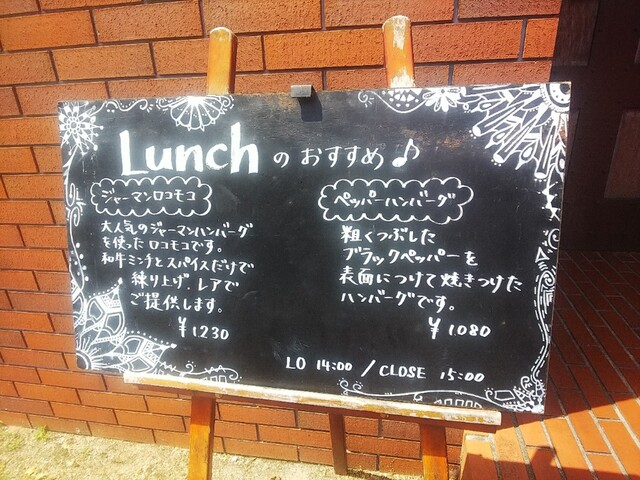 Lunch のおすすめ♪
ジャーマンロコモコ
大人気のジャーマンハンバーグ
を使ったロコモコです。
和牛ミンチとスパイスだけで
練り上げ、レアで
ご提供します。
¥1230
ペッパーハンバーグ
粗くつぶした
ブラックペッパーを
表面につけて焼きつけた
ハンバーグです。
¥1.080
LO 14:00 / CLOSE 15:00